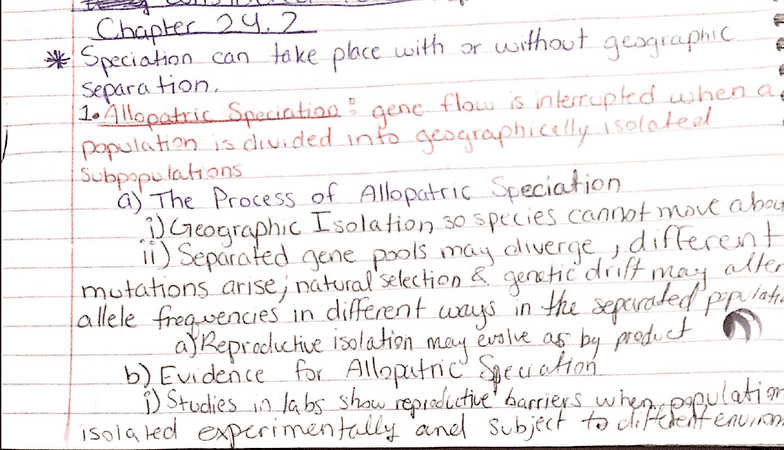 Chapter 24.2
* Speciation can take place with or without geographic
separation.
1. Allopatric Speciation: gene flow is interrupted when a
population is divided into geographically isolated
subpopulations
a) The Process of Allopatric Speciation
i) Geographic Isolation so species cannot move abou
ii) Separated gene pools may diverge, different
mutations arise; natural selection & genetic drift may alter
allele frequencies in different ways in the separated populati
a) Reproductive isolation may evolve as by product
b) Evidence for Allopatric Speciation
i) Studies in labs show reproductive barriers when population
isolated experimentally and subject to different environ